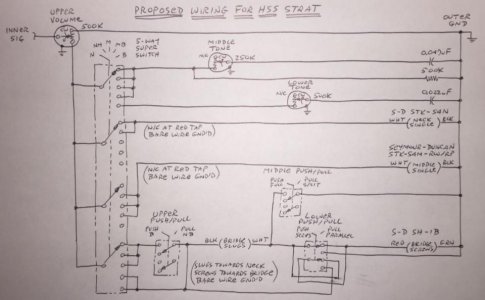 PROPOSED WIRING FOR HSS STRAT
UPPER
VOLUME
500K
INNER
SIG
OUTER
GND
N NM M MB B
5-WAY
SUPER
SWITCH
MIDDLE
TONE
N/C
250K
0.047uF
500K
LOWER
TONE
N/C
500K
0.022uF
S-D STK-S4N
WHT (NECK SINGLE) BLK
(N/C AT RED TAP)
(BARE WIRE GND'D)
SEYMOUR-DUNCAN
STK-S4M-RW/RP
WHT (MIDDLE SINGLE) BLK
(N/C AT RED TAP)
(BARE WIRE GND'D)
MIDDLE PUSH/PULL
PUSH
FULL
PULL
SPLIT
UPPER
PUSH/PULL
PUSH
B
PULL
NB
BLK (BRIDGE SLUGS) WHT
LOWER
PUSH/PULL
PUSH
SERIES
PULL
PARALLEL
S-D SH-1B
RED (BRIDGE SCREWS) GRN
(SLUGS TOWARDS NECK
SCREWS TOWARDS BRIDGE
BARE WIRE GND'D)